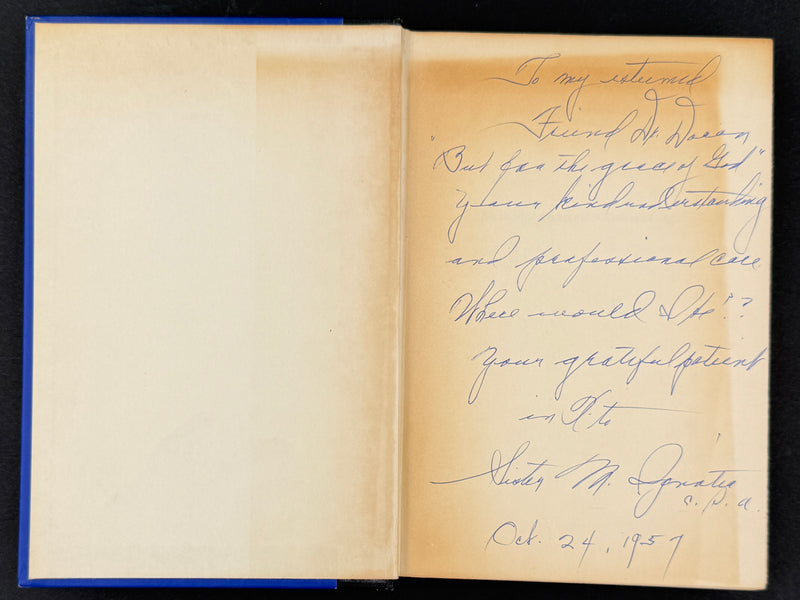 To my esteemed
Friend Dr. Doran
"But for the grace of God"
Your kind understanding
and professional care
Where would I be"?
Your grateful patient
in
Sister M. Ignatia
c. s. a.
Oct. 24, 1957